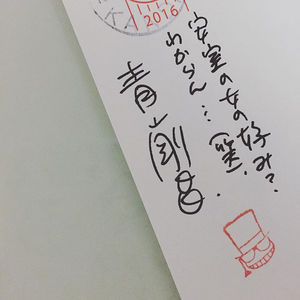 安室の女の好み?
わからん…(笑)
青山剛昌
2016